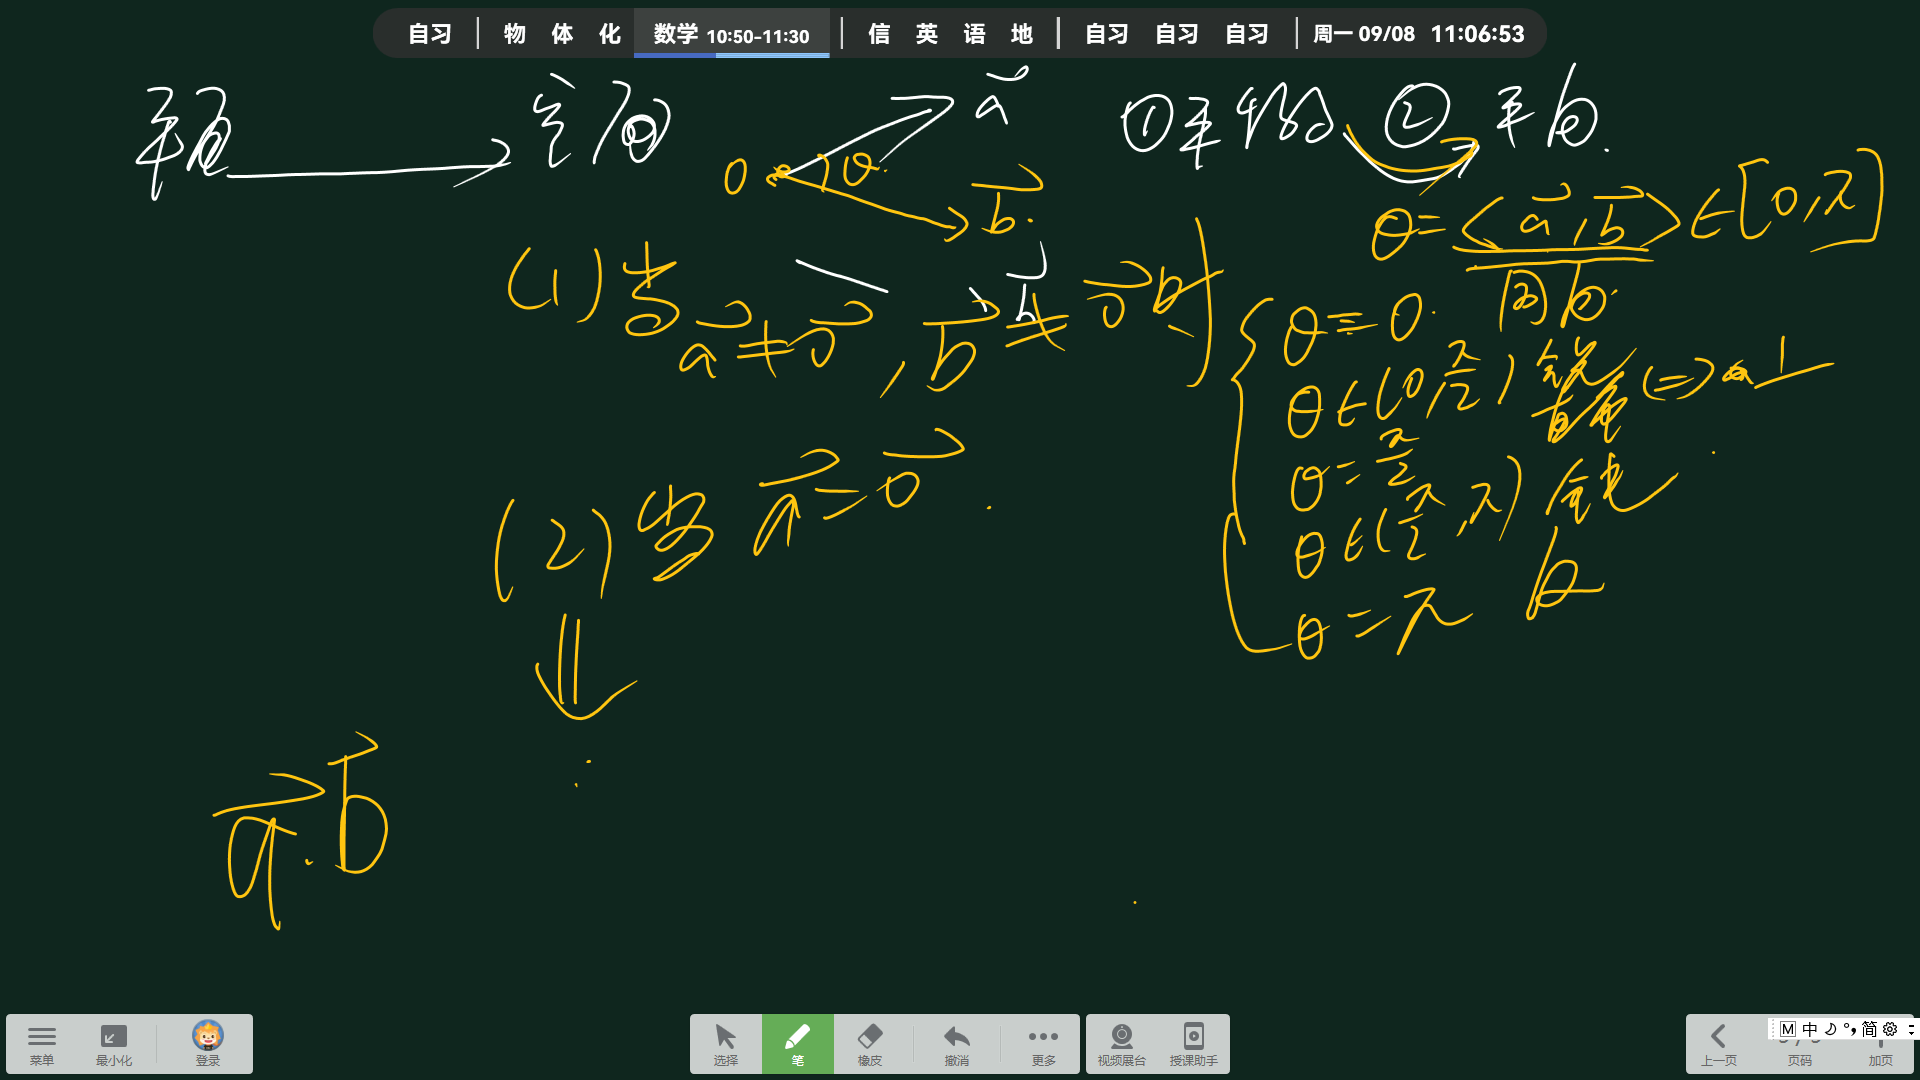 自习 | 物 体 化 数学 10:50-11:30 | 信 英 语 地 | 自习 自习 自习 | 周一 09/08 11:06:53
平面 → 空间
a⃗
O
θ
b⃗
① ② 平面
θ=<a⃗,b⃗>∈[0,π]
(1) 当 a⃗≠0⃗, b⃗≠0⃗ 时
θ=0. 同向
θ∈(0,π/2) 锐
θ=π/2 直角 <=> ⊥
θ∈(π/2,π) 钝
θ=π 反
(2) 当 a⃗=0⃗
⇓
a⃗·b⃗
菜单 最小化 登录 选择 笔 橡皮 撤消 更多 视频展台 授课助手 上一页 页码 加页
M 中 简